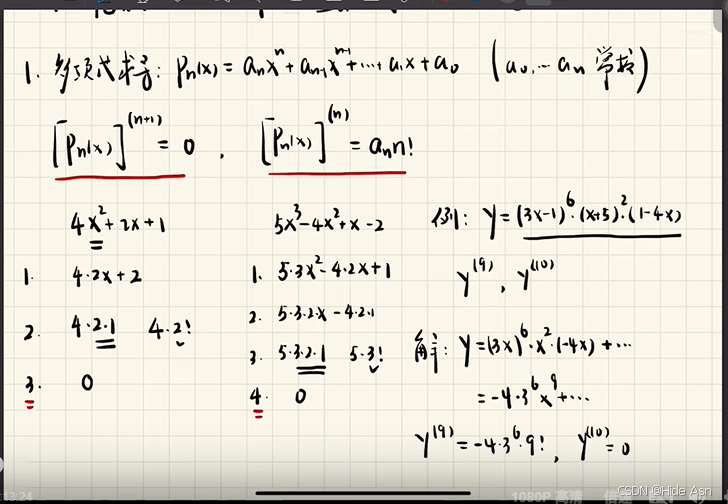 1. 多项式求导: Pn(x) = anx^n + an-1x^(n-1) + ... + a1x + a0 (a0, ... an 常数)
[Pn(x)]^(n+1) = 0 , [Pn(x)]^(n) = an n!
4x² + 2x + 1
1. 4·2x + 2
2. 4·2·1 4·2!
3. 0
5x³ - 4x² + x - 2
1. 5·3x² - 4·2x + 1
2. 5·3·2·x - 4·2·1
3. 5·3·2·1 5·3!
4. 0
例: y = (3x-1)^6·(x+5)²·(1-4x)
y^(9) , y^(10)
解: y = (3x)^6·x²·(-4x) + ...
= -4·3^6 x^9 + ...
y^(9) = -4·3^6·9! , y^(10) = 0
13:24
1080P 高清 倍速
CSDN @Hide Asn